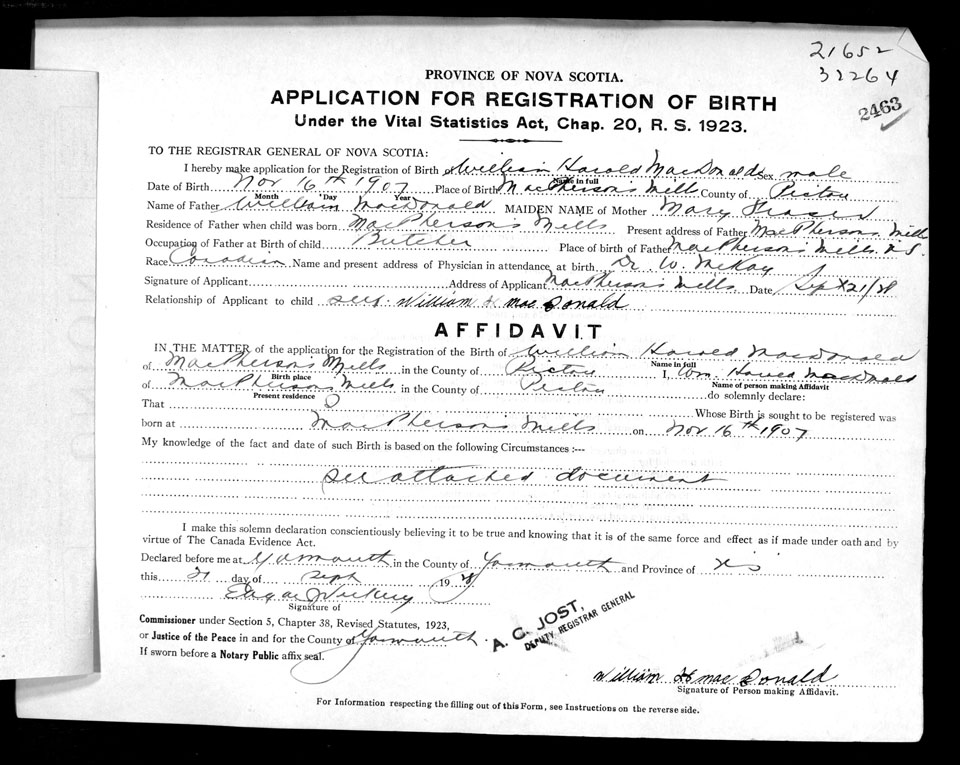 21652
32264
2463
PROVINCE OF NOVA SCOTIA.
APPLICATION FOR REGISTRATION OF BIRTH
Under the Vital Statistics Act, Chap. 20, R. S. 1923.
TO THE REGISTRAR GENERAL OF NOVA SCOTIA:
I hereby make application for the Registration of Birth of William Harold MacDonald Sex male
Name in full
Date of Birth Nov 16th 1907 Place of Birth MacPhersons Mills County of Pictou
Month Day Year
Name of Father William MacDonald MAIDEN NAME of Mother Mary Fraser
Residence of Father when child was born MacPhersons Mills Present address of Father MacPhersons Mills
Occupation of Father at Birth of child Butcher Place of birth of Father MacPhersons Mills N.S.
Race Canadian Name and present address of Physician in attendance at birth Dr. W. McKay
Signature of Applicant Address of Applicant MacPhersons Mills Date Sept 21/28
Relationship of Applicant to child self. William H MacDonald
AFFIDAVIT
IN THE MATTER of the application for the Registration of the Birth of William Harold MacDonald
Name in full
of MacPhersons Mills in the County of Pictou I, Wm. Harold MacDonald
Birth place Name of person making Affidavit
of MacPhersons Mills in the County of Pictou do solemnly declare:
Present residence
That Whose Birth is sought to be registered was
born at MacPhersons Mills on Nov 16th 1907
My knowledge of the fact and date of such Birth is based on the following Circumstances :---
see attached document
I make this solemn declaration conscientiously believing it to be true and knowing that it is of the same force and effect as if made under oath and by
virtue of The Canada Evidence Act.
Declared before me at Yarmouth in the County of Yarmouth and Province of N.S.
this 21 day of Sept 1928
Signature of
Commissioner under Section 5, Chapter 38, Revised Statutes, 1923,
or Justice of the Peace in and for the County of Yarmouth.
If sworn before a Notary Public affix seal.
A. C. JOST,
DEPUTY REGISTRAR GENERAL
William H MacDonald
Signature of Person making Affidavit.
For Information respecting the filling out of this Form, see Instructions on the reverse side.